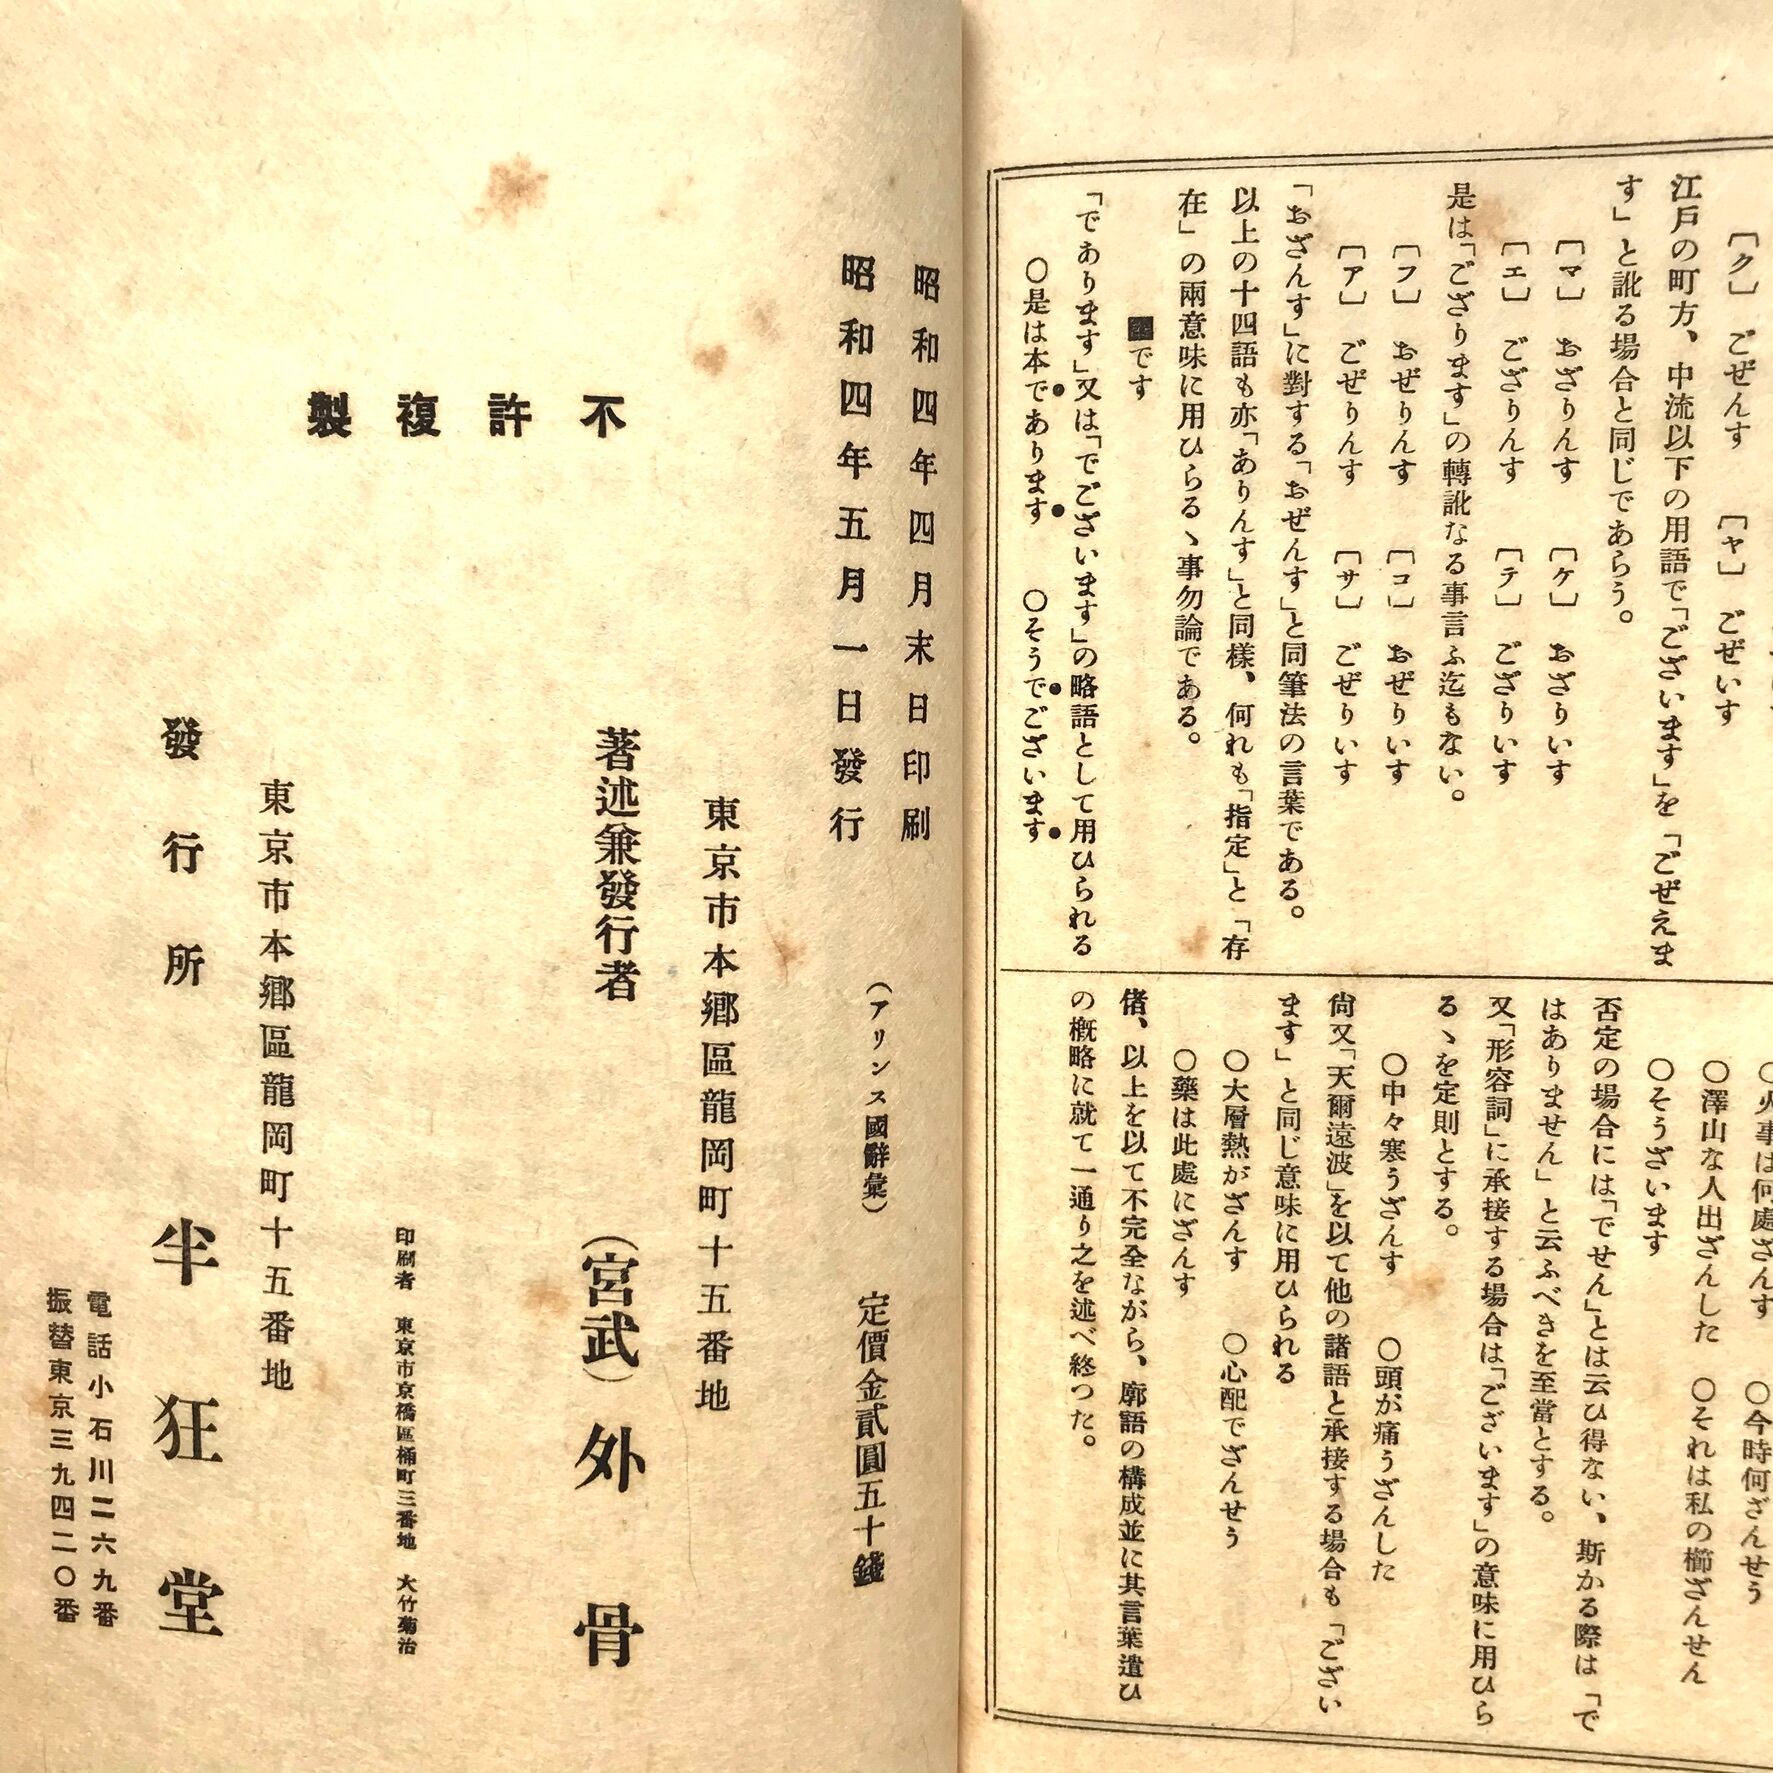 〔ク〕　ござんす　〔ヤ〕　ございす
江戸の町方、中流以下の用語で「ございます」を「ごぜえま
す」と訛る場合と同じであらう。
〔マ〕　おざりんす　〔ケ〕　おざりいす
〔エ〕　ござりんす　〔テ〕　ござりいす
是は「ござります」の轉訛なる事言ふ迄もない。
〔フ〕　おぜりんす　〔コ〕　おぜりいす
〔ア〕　ごぜりんす　〔サ〕　ごぜりいす
「おざんす」に對する「おぜんす」と同筆法の言葉である。
以上の十四語も亦「ありんす」と同様、何れも「指定」と「存
在」の兩意味に用ひらるゝ事勿論である。
です
「であります」又は「でございます」の略語として用ひられる
〇是は本であります　〇そうでございます
〇火事は何處ざんす　〇今時何ざんせう
〇澤山な人出ざんした　〇それは私の櫛ざんせん
〇そうざいます
否定の場合には「でせん」とは云ひ得ない、斯かる際は「で
はありません」と云ふべきを至當とする。
又「形容詞」に承接する場合は「ございます」の意味に用ひら
るゝを定則とする。
〇中々寒うざんす　〇頭が痛うざんした
尙又「天爾遠波」を以て他の諸語と承接する場合も「ござい
ます」と同じ意味に用ひられる
〇大層熱がざんす　〇心配でざんせう
〇藥は此處にざんす
偖、以上を以て不完全ながら、廓語の構成並に其言葉遣ひ
の概略に就て一通り之を述べ終つた。
昭和四年四月末日印刷
昭和四年五月一日發行
（アリンス國辭彙）　定價金貳圓五十錢
不許複製
東京市本鄕區龍岡町十五番地
著述兼發行者　（宮武）外骨
印刷者　東京市京橋區桶町三番地　大竹菊治
東京市本鄕區龍岡町十五番地
發行所　半狂堂
電話小石川二六九番
振替東京三九四二〇番